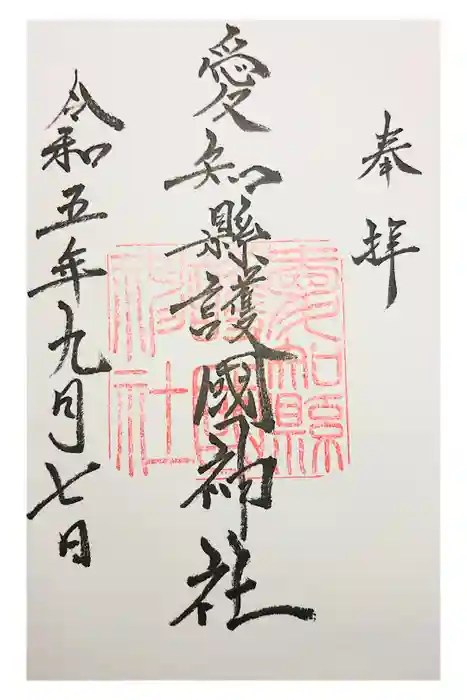 奉拝
愛知縣護國神社
令和五年九月七日
愛知縣
護國
神社